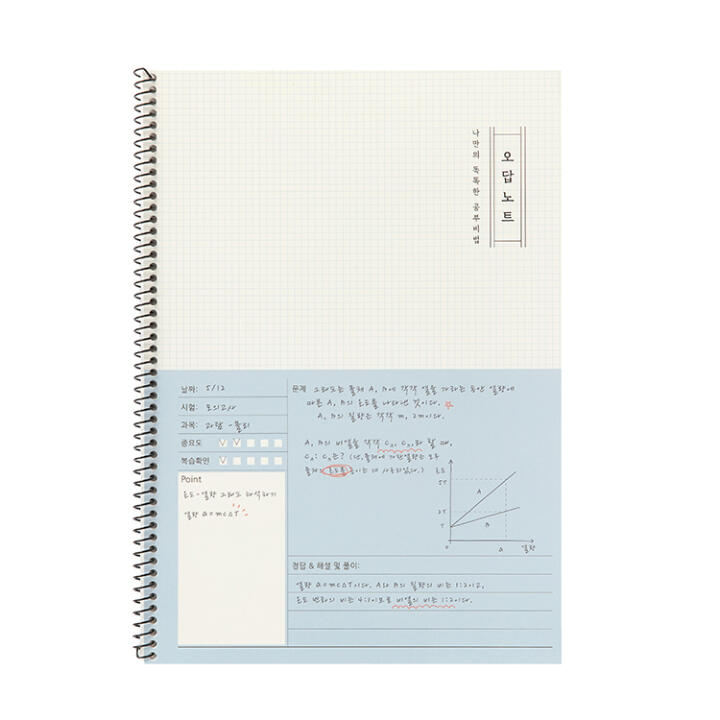 오답노트
나만의 똑똑한 공부비법
날짜: 5/12
시험: 모의고사
과목: 과탐-물리
중요도
복습확인
Point
온도-열량 그래프 해석하기
열량 Q=mcΔT
문제 그래프는 물체 A, B에 각각 열을 가하는 동안 열량에
따른 A, B의 온도를 나타낸 것이다.
A, B의 질량은 각각 m, 2m이다.
A, B의 비열을 각각 CA, CB라 할 때,
CA: CB는? (단, 물체에 가한 열량은 모두
물체의 온도를 높이는 데 사용되었다.)
온도
5T
2T
T
A
B
0
Q
열량
정답 & 해설 및 풀이:
열량 Q=mcΔT이다. A와 B의 질량의 비는 1:2이고,
온도 변화의 비는 4:1이므로 비열의 비는 1:2이다.